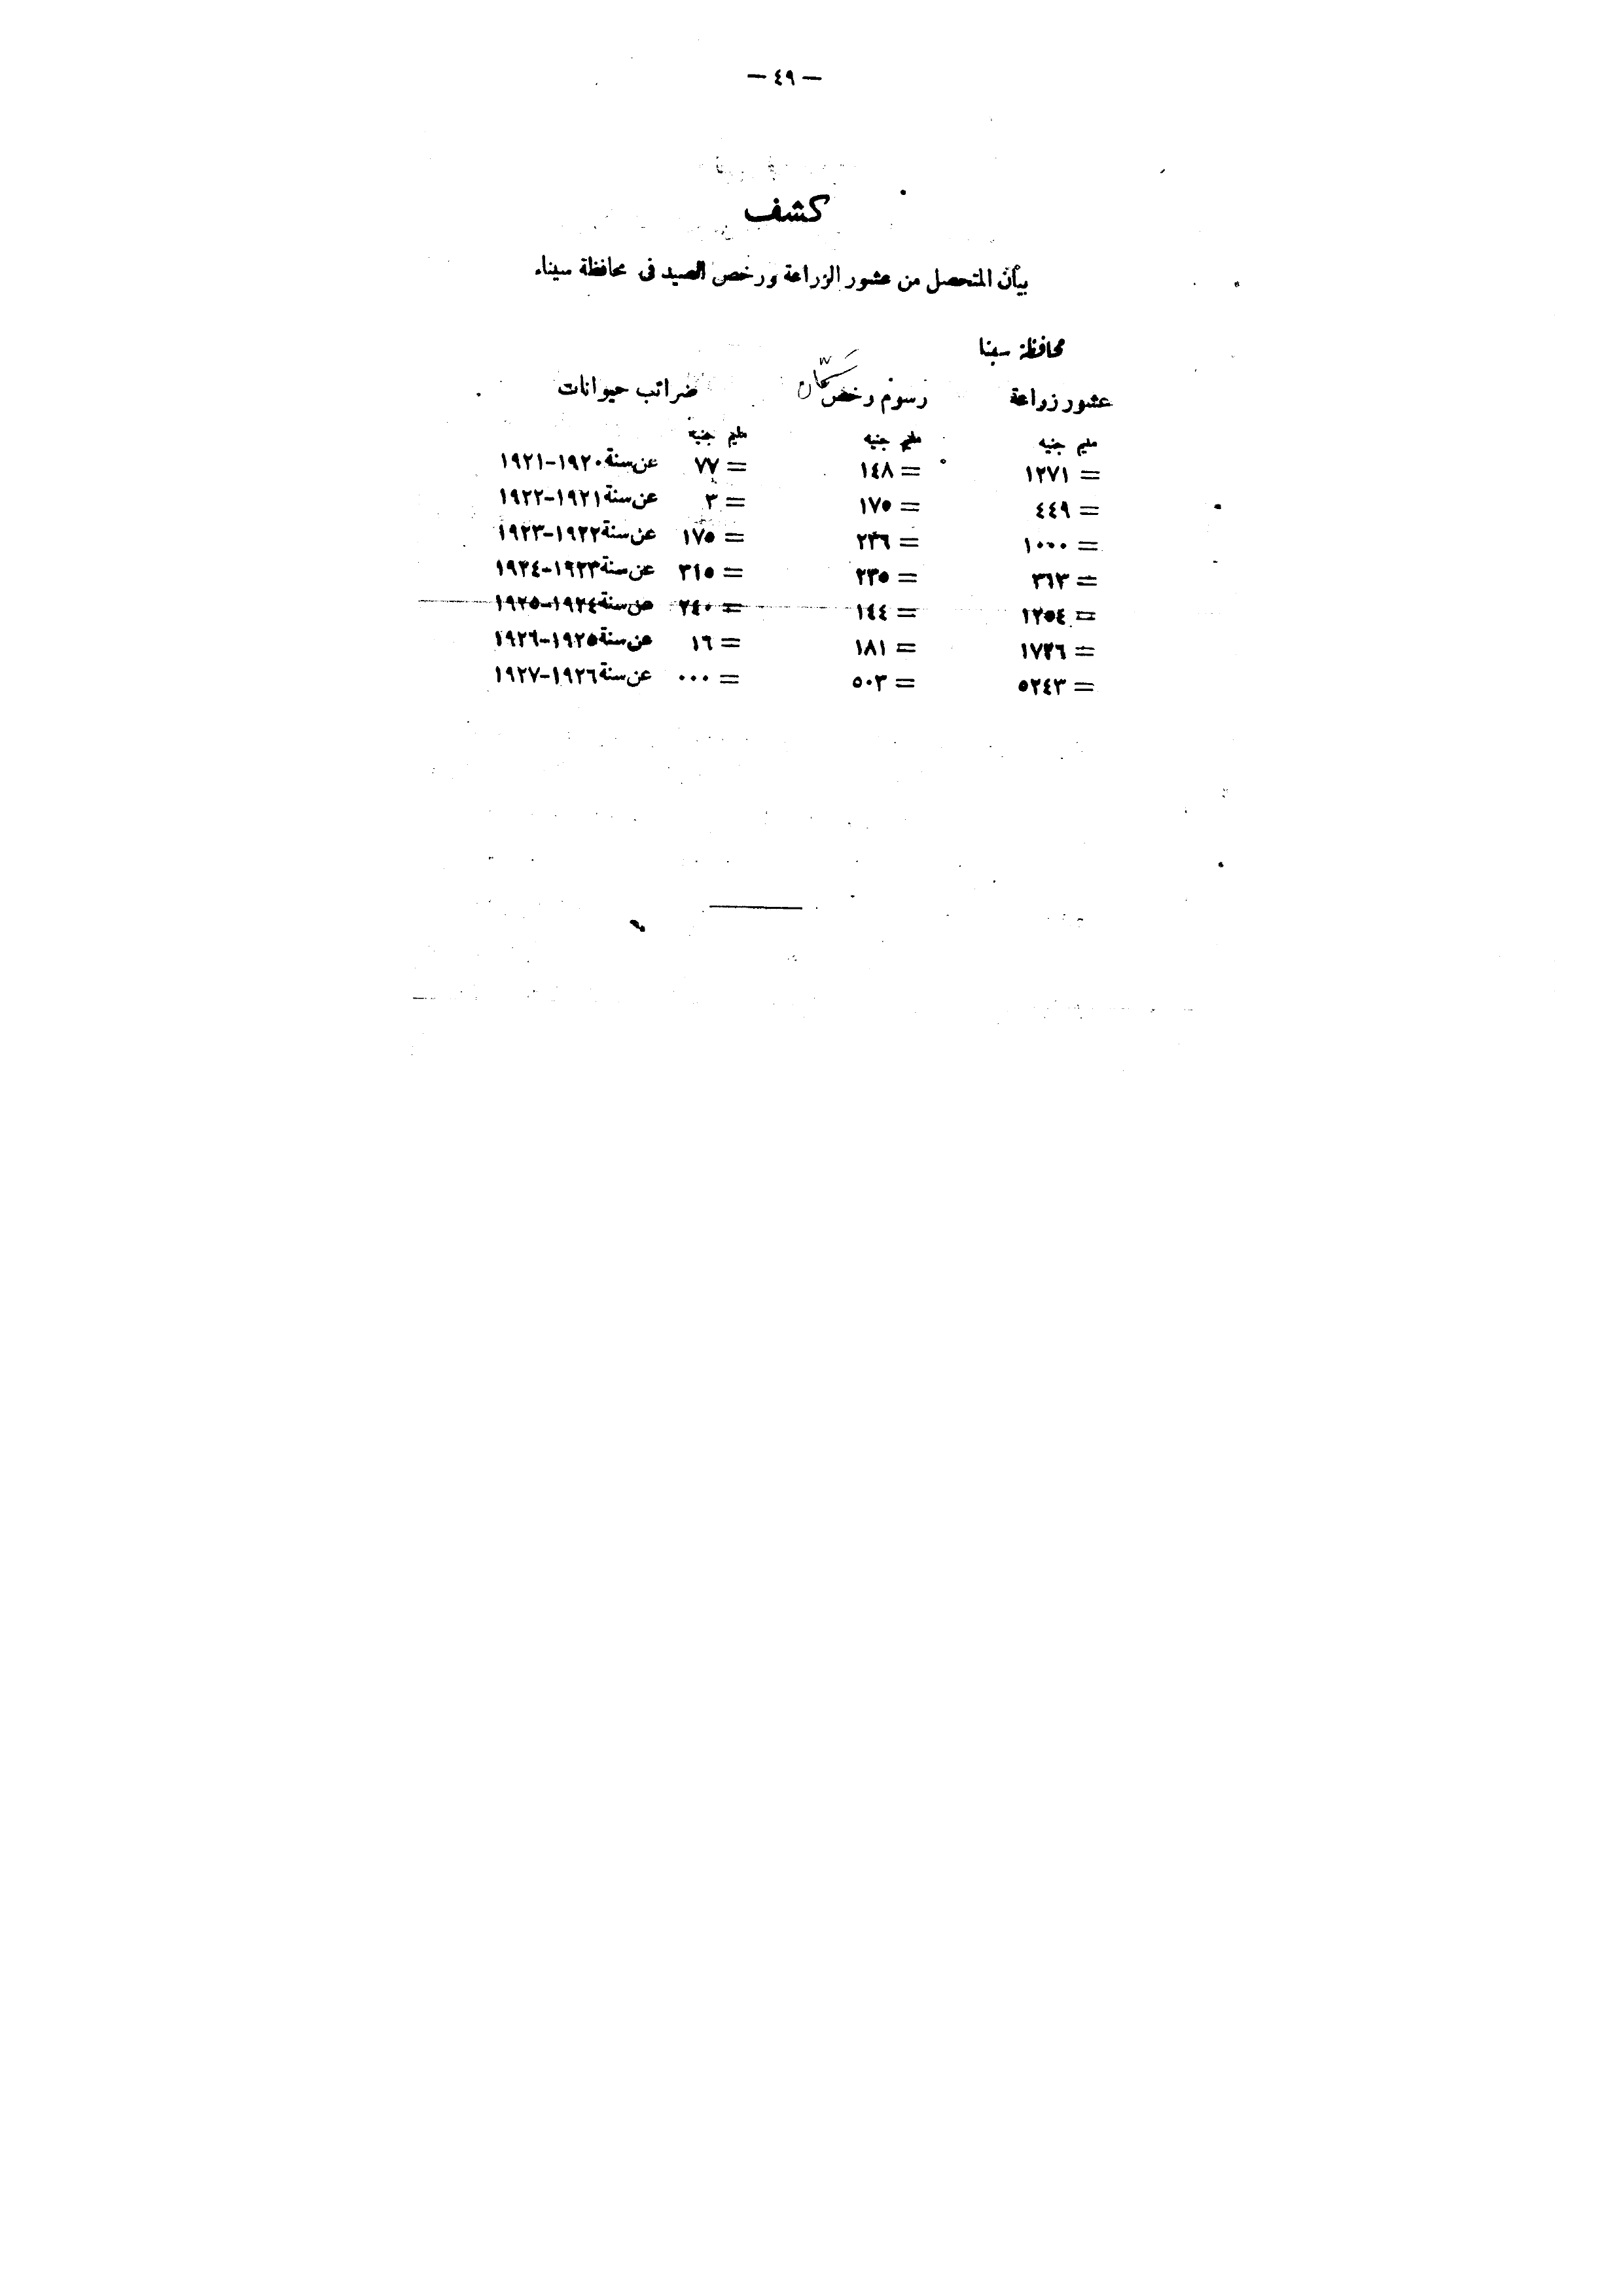 — ٤٩ —
كشف
بيان المتحصل من عشور الزراعة ورخص الصيد فى محافظة سيناء
محافظة سينا
عشور زراعة رسوم رخص ضرائب حيوانات
مليم جنيه مليم جنيه مليم جنيه
= ١٢٧١ = ١٤٨ = ٧٧ عن سنة ١٩٢٠-١٩٢١
= ٤٤٩ = ١٧٥ = ٣ عن سنة ١٩٢١-١٩٢٢
= ١٠٠٠ = ٢٣٦ = ١٧٥ عن سنة ١٩٢٢-١٩٢٣
= ٣٦٣ = ٢٣٥ = ٣١٥ عن سنة ١٩٢٣-١٩٢٤
= ١٢٥٤ = ١٤٤ = ٢٤٠ عن سنة ١٩٢٤-١٩٢٥
= ١٧٣٦ = ١٨١ = ١٦ عن سنة ١٩٢٥-١٩٢٦
= ٥٢٤٣ = ٥٠٣ = ٠٠٠ عن سنة ١٩٢٦-١٩٢٧